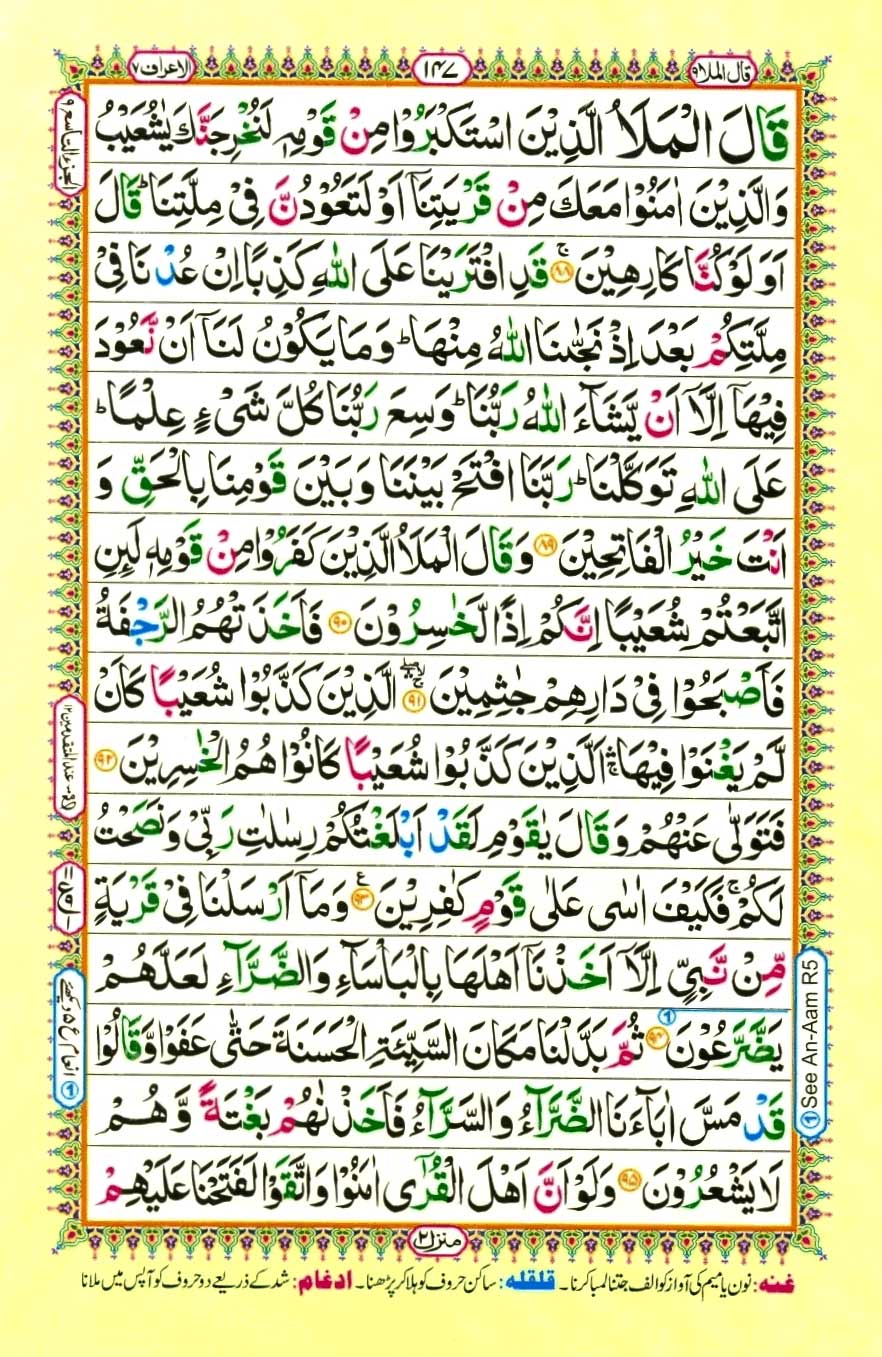 قال الملا٩
١٤٧
الاعراف٧
قَالَ الْمَلَاُ الَّذِيْنَ اسْتَكْبَرُوْا مِنْ قَوْمِهٖ لَنُخْرِجَنَّكَ يٰشُعَيْبُ
وَالَّذِيْنَ اٰمَنُوْا مَعَكَ مِنْ قَرْيَتِنَاۤ اَوْ لَتَعُوْدُنَّ فِىْ مِلَّتِنَا ؕ قَالَ
اَوَلَوْ كُنَّا كَارِهِيْنَ ۚ‏﴿۸۸﴾ قَدِ افْتَرَيْنَا عَلَى اللّٰهِ كَذِبًا اِنْ عُدْنَا فِىْ
مِلَّتِكُمْ بَعْدَ اِذْ نَجّٰٮنَا اللّٰهُ مِنْهَا ؕ وَمَا يَكُوْنُ لَنَاۤ اَنْ نَّعُوْدَ
فِيْهَاۤ اِلَّاۤ اَنْ يَّشَآءَ اللّٰهُ رَبُّنَا ؕ وَسِعَ رَبُّنَا كُلَّ شَىْءٍ عِلْمًا ؕ
عَلَى اللّٰهِ تَوَكَّلْنَا ؕ رَبَّنَا افْتَحْ بَيْنَنَا وَبَيْنَ قَوْمِنَا بِالْحَقِّ وَ
اَنْتَ خَيْرُ الْفَاتِحِيْنَ ﴿۸۹﴾ وَقَالَ الْمَلَاُ الَّذِيْنَ كَفَرُوْا مِنْ قَوْمِهٖ لَئِنِ
اتَّبَعْتُمْ شُعَيْبًا اِنَّكُمْ اِذًا لَّخٰسِرُوْنَ ﴿۹۰﴾ فَاَخَذَتْهُمُ الرَّجْفَةُ
فَاَصْبَحُوْا فِىْ دَارِهِمْ جٰثِمِيْنَ ﴿۹۱﴾ الَّذِيْنَ كَذَّبُوْا شُعَيْبًا كَاَنْ
لَّمْ يَغْنَوْا فِيْهَا ۛۚ اَلَّذِيْنَ كَذَّبُوْا شُعَيْبًا كَانُوْا هُمُ الْخٰسِرِيْنَ ﴿۹۲﴾
فَتَوَلّٰى عَنْهُمْ وَقَالَ يٰقَوْمِ لَقَدْ اَبْلَغْتُكُمْ رِسٰلٰتِ رَبِّىْ وَنَصَحْتُ
لَكُمْ ۚ فَكَيْفَ اٰسٰى عَلٰى قَوْمٍ كٰفِرِيْنَ ﴿۹۳﴾ وَمَاۤ اَرْسَلْنَا فِىْ قَرْيَةٍ
مِّنْ نَّبِىٍّ اِلَّاۤ اَخَذْنَاۤ اَهْلَهَا بِالْبَاْسَآءِ وَالضَّرَّآءِ لَعَلَّهُمْ
يَضَّرَّعُوْنَ ﴿۹۴﴾ ① ثُمَّ بَدَّلْنَا مَكَانَ السَّيِّئَةِ الْحَسَنَةَ حَتّٰى عَفَوْا وَّقَالُوْا
قَدْ مَسَّ اٰبَآءَنَا الضَّرَّآءُ وَالسَّرَّآءُ فَاَخَذْنٰهُمْ بَغْتَةً وَّهُمْ
لَا يَشْعُرُوْنَ ﴿۹۵﴾ وَلَوْ اَنَّ اَهْلَ الْقُرٰٓى اٰمَنُوْا وَاتَّقَوْا لَفَتَحْنَا عَلَيْهِمْ
① See An-Aam R5
الجزء التاسع ٩
① انعام ع ۵ دیکھئے
منزل۲
غنه: نون یا میم کی آواز کو الف جتنا لمبا کرنا۔ قلقله: ساکن حروف کو ہلا کر پڑھنا۔ ادغام: شد کے ذریعے دو حروف کو آپس میں ملانا